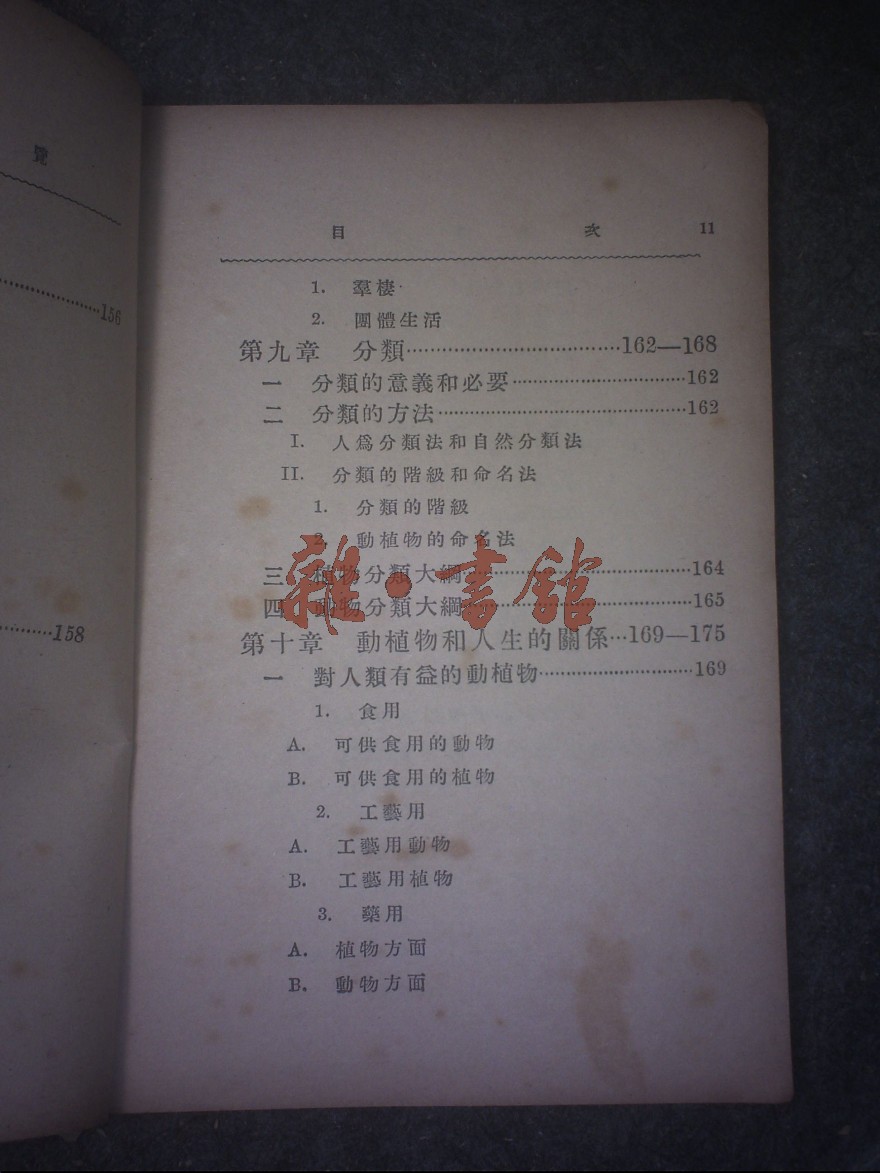 覽
156
158
目 次 11
1. 羣棲
2. 團體生活
第九章 分類……………………………162—168
一 分類的意義和必要………………………162
二 分類的方法…………………………………162
I. 人爲分類法和自然分類法
II. 分類的階級和命名法
1. 分類的階級
2. 動植物的命名法
三 植物分類大綱………………………………164
四 動物分類大綱………………………………165
第十章 動植物和人生的關係…169—175
一 對人類有益的動植物……………………169
1. 食用
A. 可供食用的動物
B. 可供食用的植物
2. 工藝用
A. 工藝用動物
B. 工藝用植物
3. 藥用
A. 植物方面
B. 動物方面
雜·書館